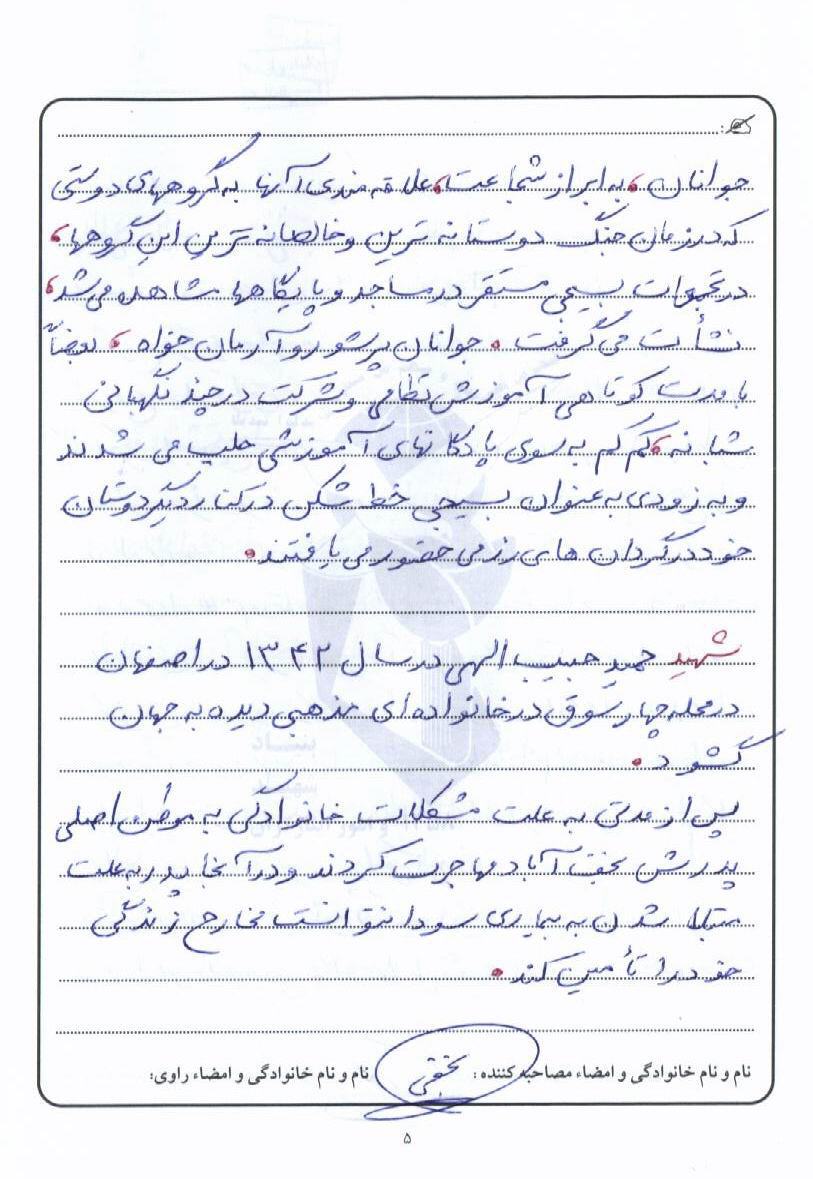 جوانان، به ابراز شجاعت، علاقه مندی آنها به گروههای دوستی
که در زمان جنگ دوستانه ترین و خالصانه ترین این گروهها،
در تجمعات بسیجی مستقر در مساجد و پایگاهها مشاهده می شد،
نشأت می گرفت. جوانان پرشور و آرمان خواه، بعضاً
با مدت کوتاهی آموزش نظامی و شرکت در چند نگهبانی
شبانه، کم کم به سوی پادگانهای آموزشی جلب می شدند
و به زودی به عنوان بسیجی خط شکن در کنار دیگر دوستان
خود در گردان های رزمی حضور می یافتند.
شهید حمید حبیب الهی در سال ۱۳۴۲ در اصفهان
در محله چهارسوق در خانواده ای مذهبی دیده به جهان
گشود.
پس از مدتی به علت مشکلات خانوادگی به موطن اصلی
پدرش نجف آباد مهاجرت کردند و در آنجا پدر به علت
مبتلا شدن به بیماری سودا نتوانست مخارج زندگی
خود را تأمین کند.
نام و نام خانوادگی و امضاء مصاحبه کننده: نجفی نام و نام خانوادگی و امضاء راوی:
۵